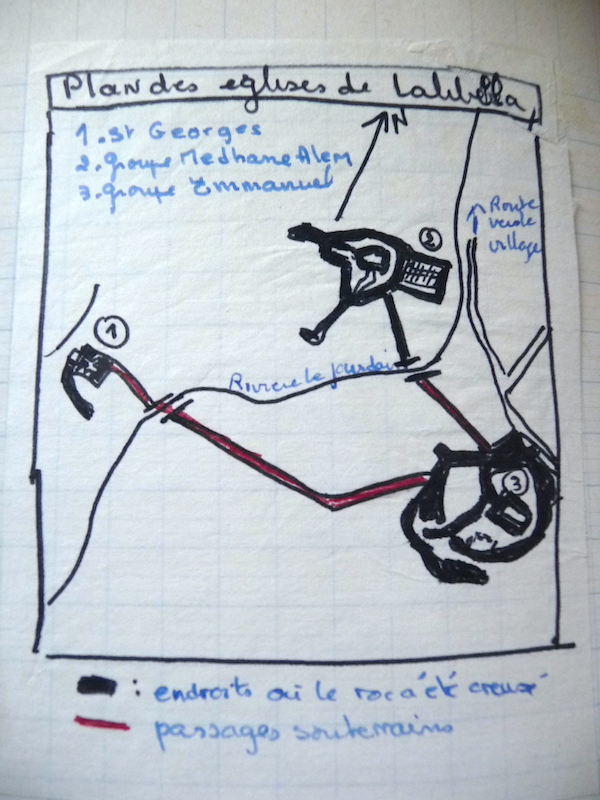 Plan des eglises de Lalibella
N
1. St Georges
2. groupe Medhane Alem
3. groupe Emmanuel
2
Route
vers le
village
1
Riviere le Jourdain
3
: endroits où le roc a été creusé
passages souterrains